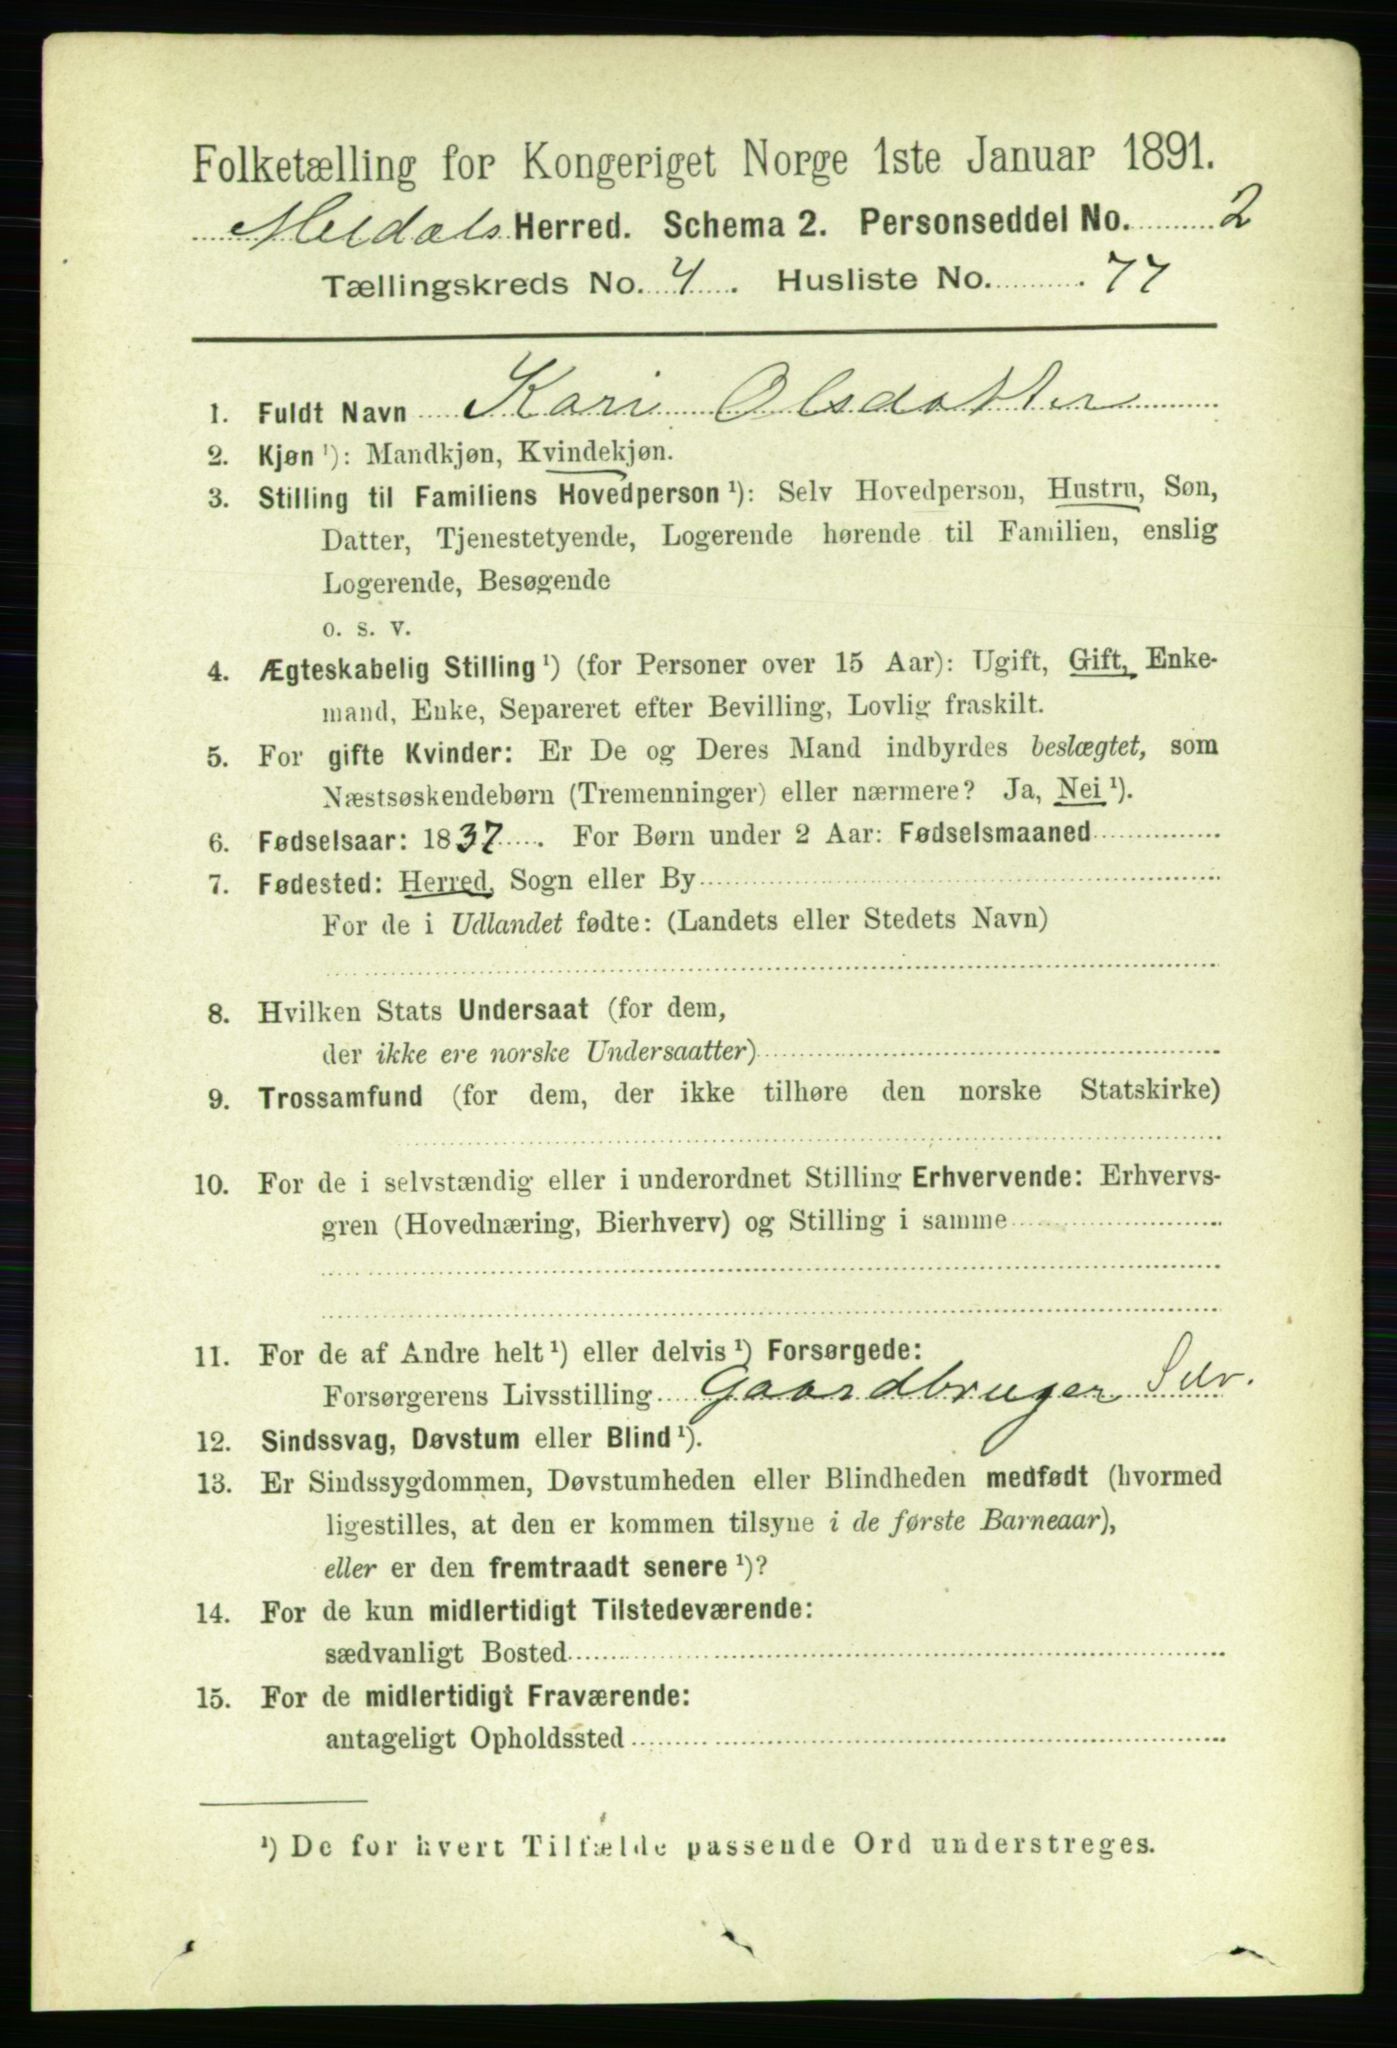 Folketælling for Kongeriget Norge 1ste Januar 1891.
Meldals Herred. Schema 2. Personseddel No. 2
Tællingskreds No. 4. Husliste No. 77
1. Fuldt Navn Kari Olsdatter
2. Kjøn ¹): Mandkjøn, Kvindekjøn.
3. Stilling til Familiens Hovedperson ¹): Selv Hovedperson, Hustru, Søn,
Datter, Tjenestetyende, Logerende hørende til Familien, enslig
Logerende, Besøgende
o. s. v.
4. Ægteskabelig Stilling ¹) (for Personer over 15 Aar): Ugift, Gift, Enke-
mand, Enke, Separeret efter Bevilling, Lovlig fraskilt.
5. For gifte Kvinder: Er De og Deres Mand indbyrdes beslægtet, som
Næstsøskendebørn (Tremenninger) eller nærmere? Ja, Nei ¹).
6. Fødselsaar: 1837. For Børn under 2 Aar: Fødselsmaaned
7. Fødested: Herred, Sogn eller By
For de i Udlandet fødte: (Landets eller Stedets Navn)
8. Hvilken Stats Undersaat (for dem,
der ikke ere norske Undersaatter)
9. Trossamfund (for dem, der ikke tilhøre den norske Statskirke)
10. For de i selvstændig eller i underordnet Stilling Erhvervende: Erhvervs-
gren (Hovednæring, Bierhverv) og Stilling i samme
11. For de af Andre helt ¹) eller delvis ¹) Forsørgede:
Forsørgerens Livsstilling Gaardbruger Selv.
12. Sindssvag, Døvstum eller Blind ¹).
13. Er Sindssygdommen, Døvstumheden eller Blindheden medfødt (hvormed
ligestilles, at den er kommen tilsyne i de første Barneaar),
eller er den fremtraadt senere ¹)?
14. For de kun midlertidigt Tilstedeværende:
sædvanligt Bosted
15. For de midlertidigt Fraværende:
antageligt Opholdssted
¹) De for hvert Tilfælde passende Ord understreges.